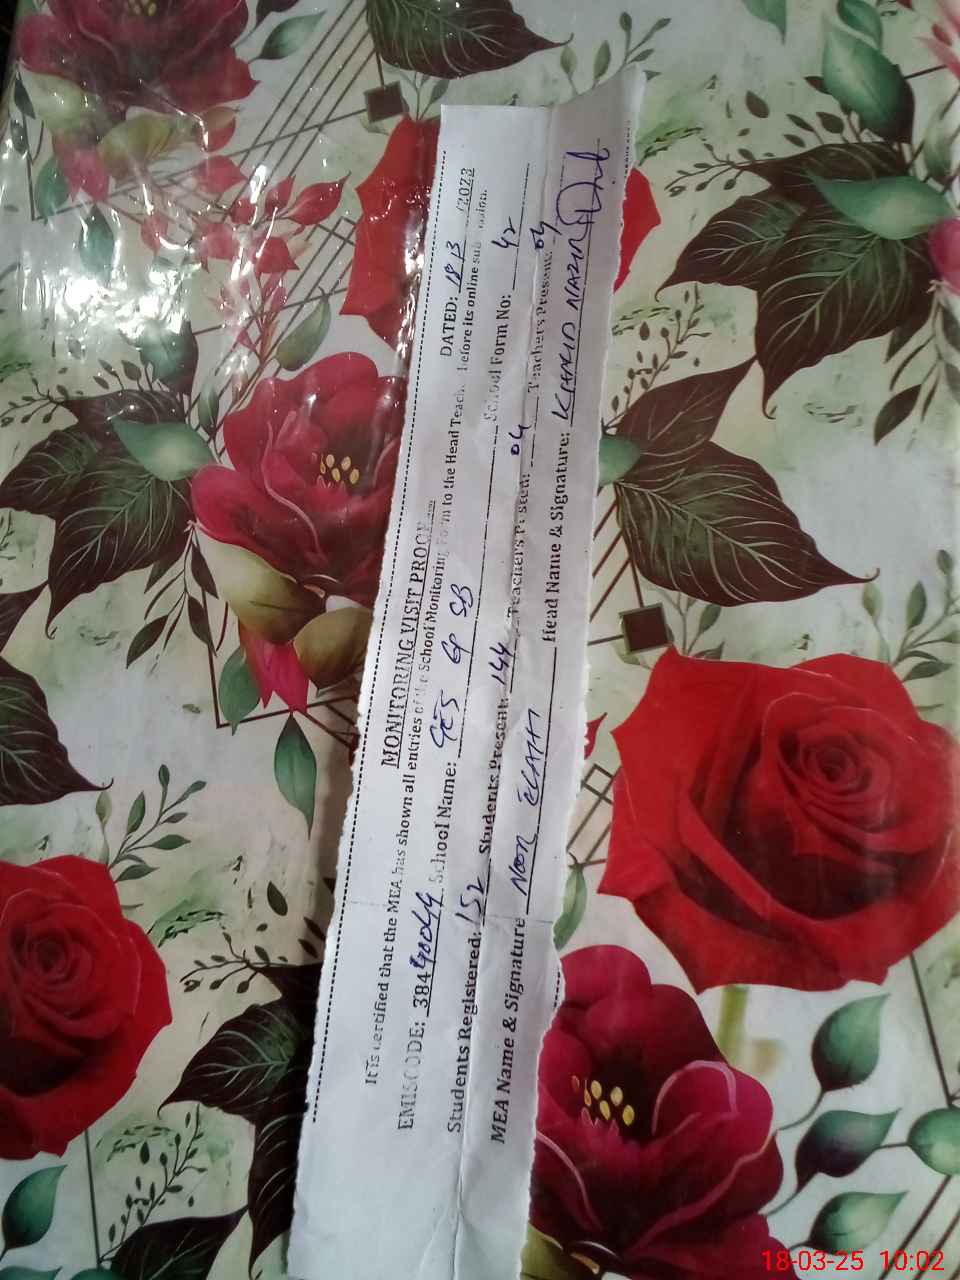 MONITORING VISIT PROOF
DATED: 18/3 /2023
It is certified that the MEA has shown all entries of the School Monitoring Form to the Head Teach before its online sub ssion.
EMISCODE: 384 School Name: GES SB
School Form No: 42
Students Registered: 152 Students Present: 144 Teachers Posted: 04 Teachers Present: 04
MEA Name & Signature Noor Head Name & Signature:
18-03-25 10:02